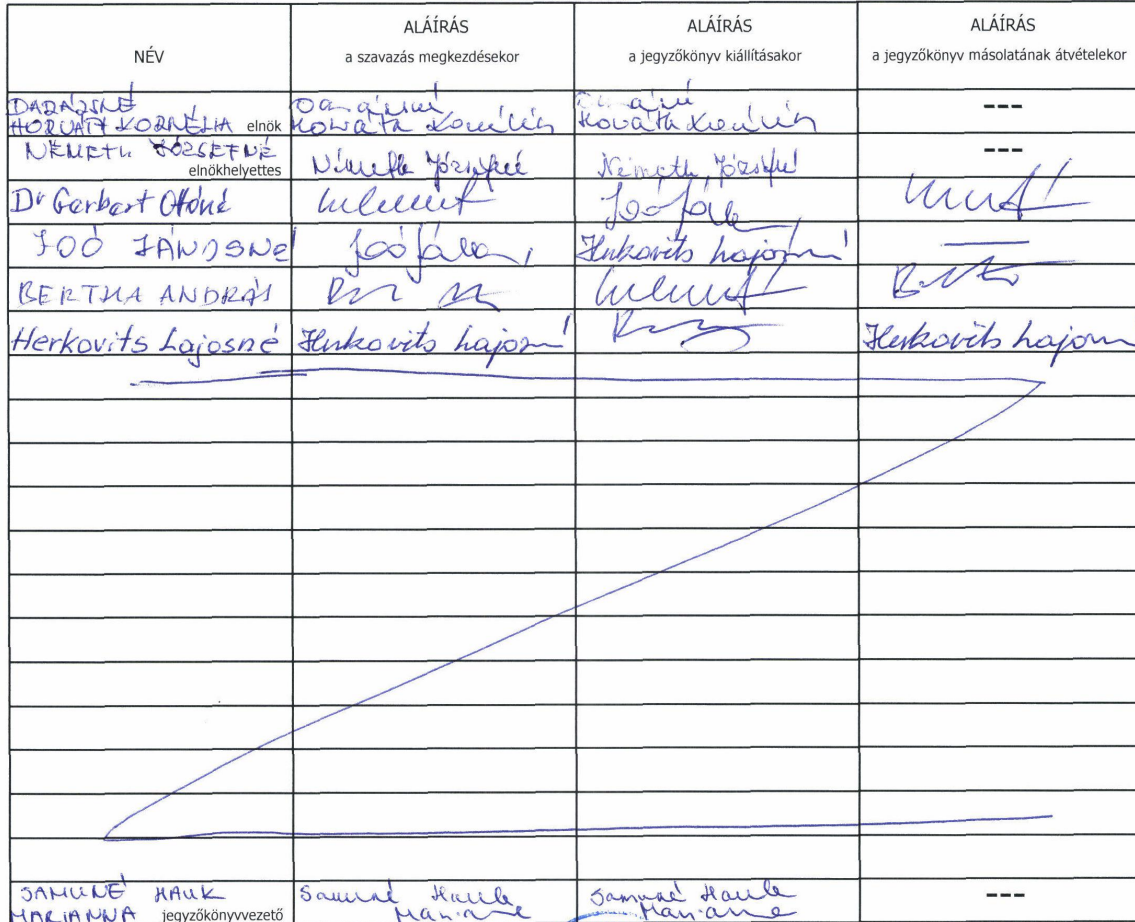 NÉV
ALÁÍRÁS
a szavazás megkezdésekor
ALÁÍRÁS
a jegyzőkönyv kiállításakor
ALÁÍRÁS
a jegyzőkönyv másolatának átvételekor
DARÁZSNÉ
HORVÁTH KORNÉLIA elnök
Horváth Kornélia
Horváth Kornélia
---
NÉMETH JÓZSEFNÉ
elnökhelyettes
Németh Józsefné
Németh Józsefné
---
Dr Gerbert Ottóné
JOÓ JÁNOSNÉ
Herkovits Lajosné
BERTHA ANDRÁS
Herkovits Lajosné
Herkovits Lajosné
Herkovits Lajosné
SAMUNÉ HAUK
MARIANNA jegyzőkönyvvezető
Samuné Hauk
Marianna
Samuné Hauk
Marianna
---